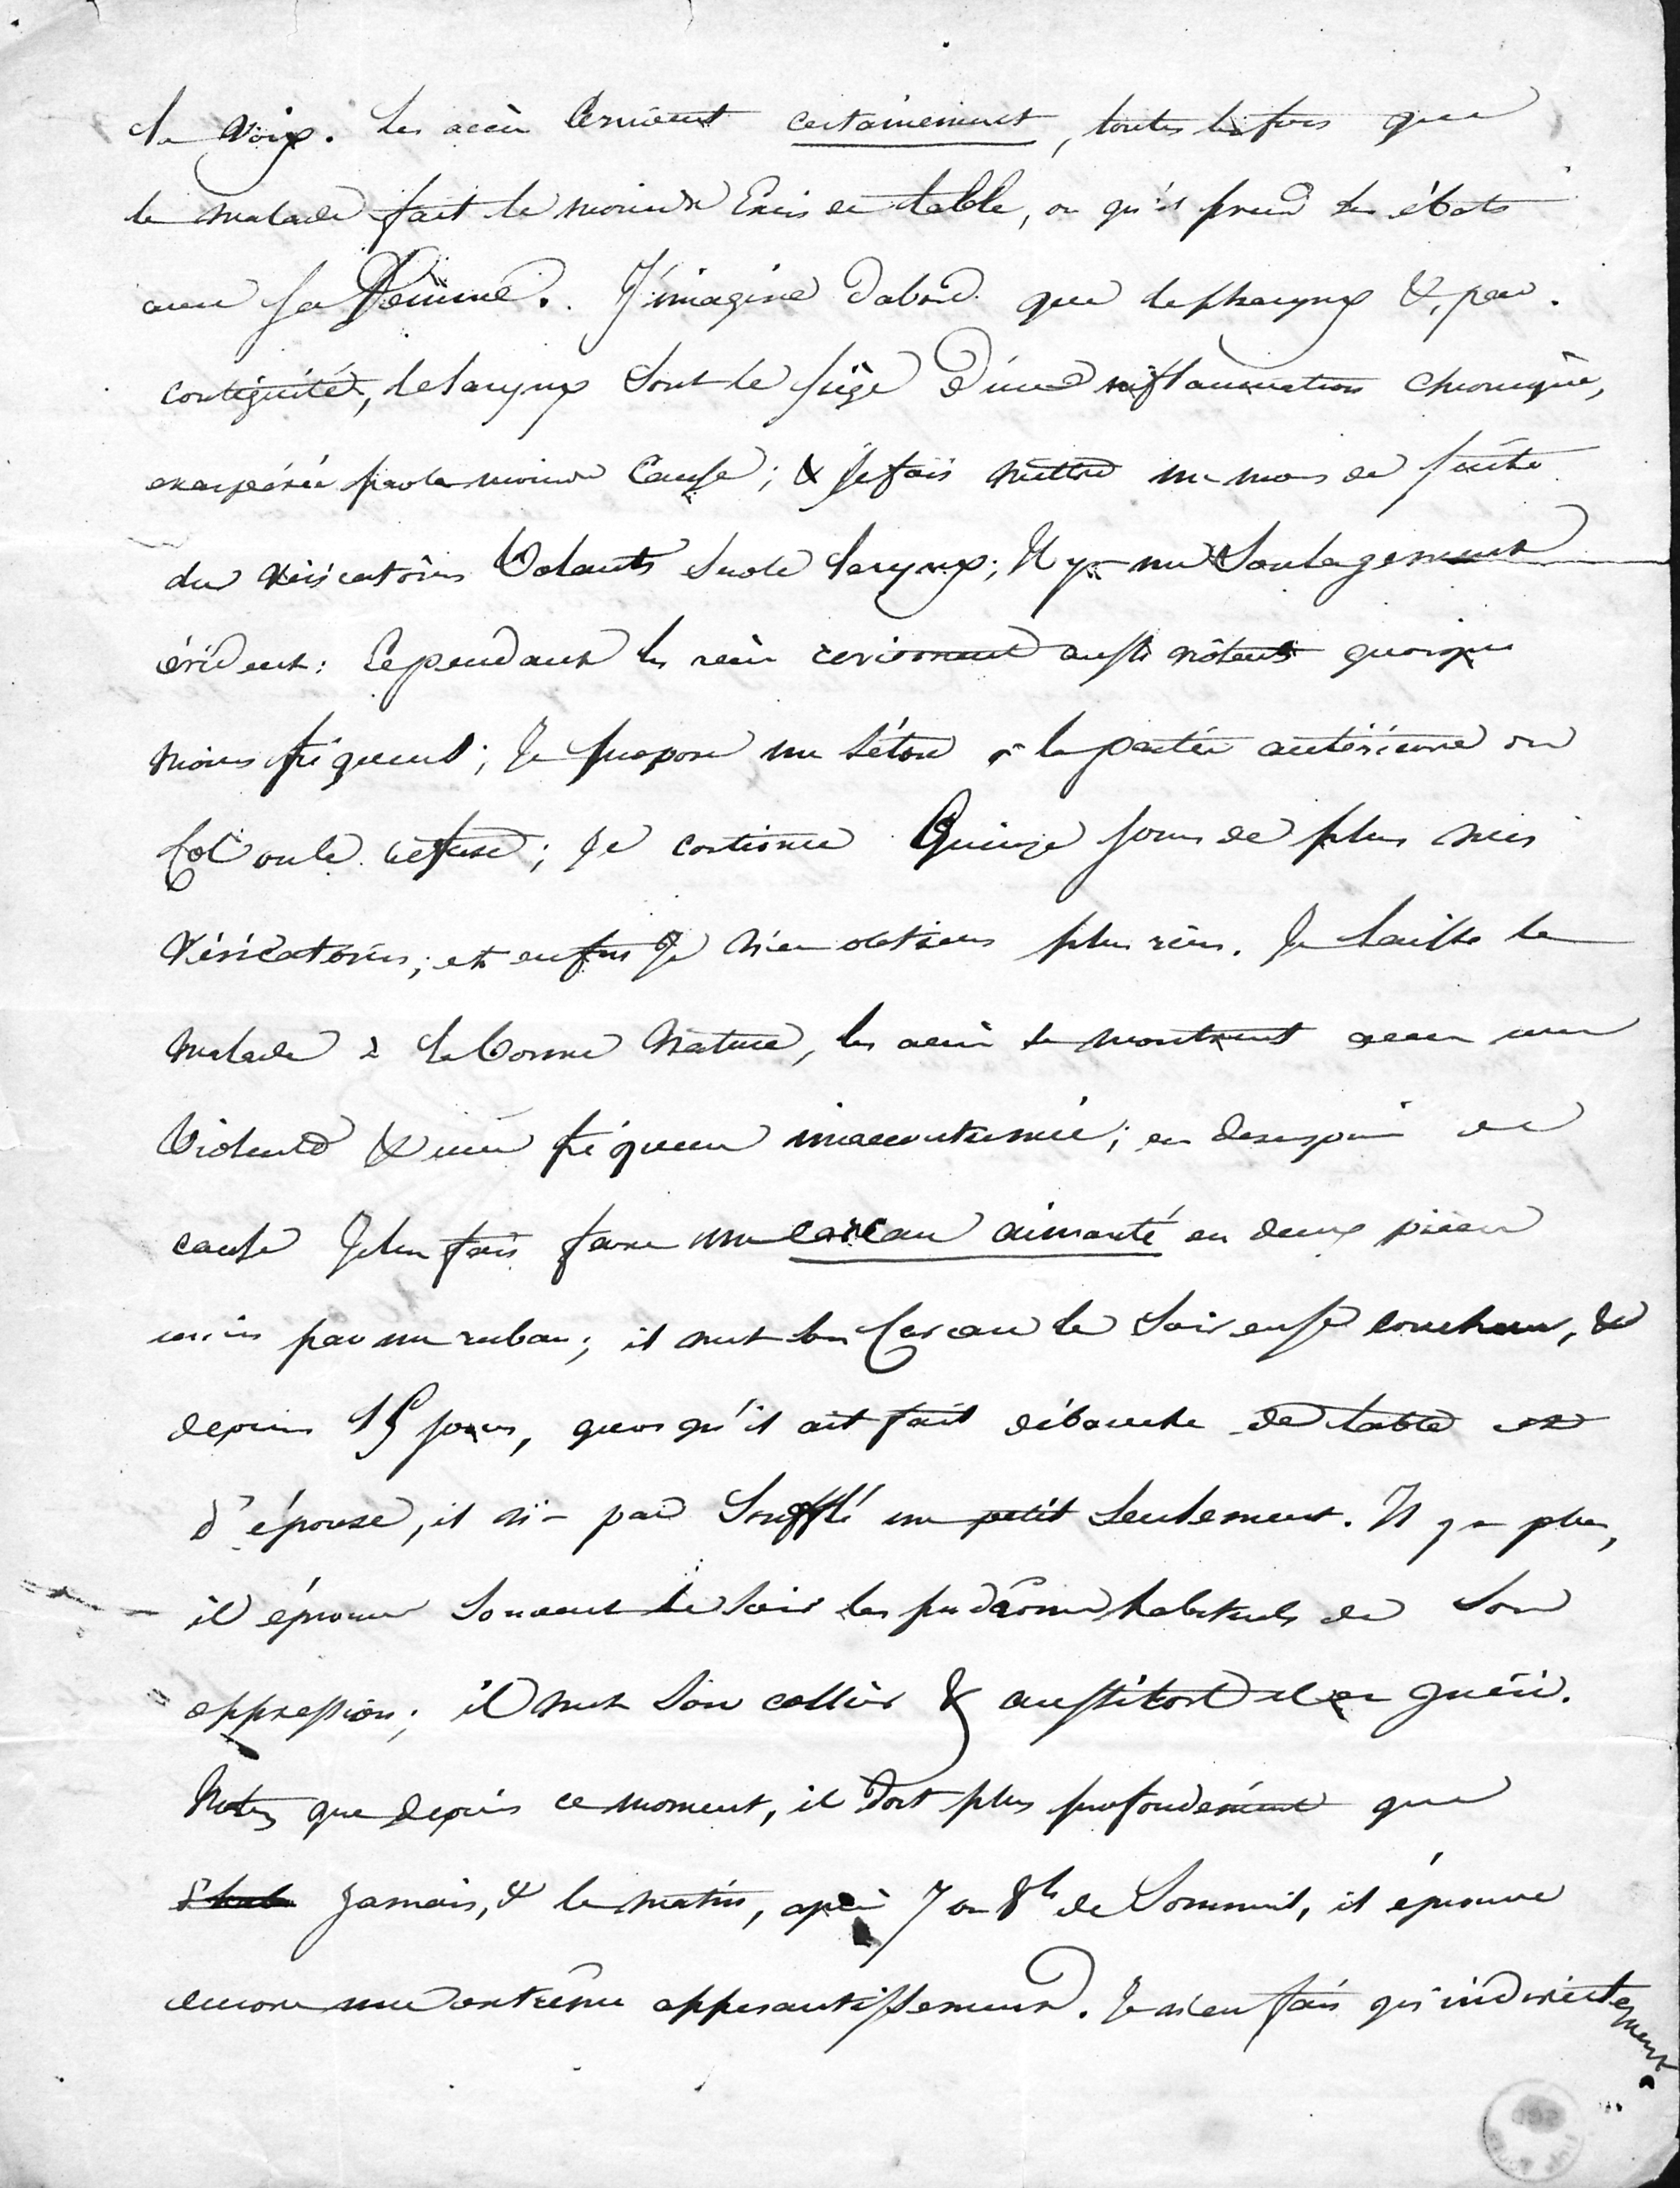 la voix. Les accès reviennent certainement, toutes les fois que
le malade fait le moindre excès de table, ou qu'il prend ses ébats
avec sa femme. J'imagine d'abord que le pharynx & par
contiguité, le larynx sont le siège d'une inflammation chronique,
exaspérée par la moindre cause; & je fais mettre un mois de suite
des vésicatoires volants sur le larynx; Il y a un soulagement
évident: Cependant les accès reviennent aussi violents quoique
moins fréquents; Je propose un séton à la partie antérieure du
Col on le refuse; je continue Quinze jours de plus mes
vésicatoires; et enfin je n'en obtiens plus rien. Je laisse le
malade à la bonne Nature, les accès se montrent avec une
violence & une fréquence inaccoutumée; en désespoir de
cause Je lui fais faire un carcan aimanté en deux pièces
unies par un ruban; il met son Carcan le soir en se couchant, &
depuis 15 jours, quoi qu'il ait fait débauche de table et
d'épouse, il n'a pas soufflé un petit seulement. Il y a plus,
il éprouve souvent le soir les prodromes habituels de son
oppression; il met son collier & aussitôt il est guéri.
Notez que depuis ce moment, il dort plus profondément que
jamais, & le matin, après 7 ou 8h de sommeil, il éprouve
encore un extrême appesantissement. Je n'en fais qu'indirectement.